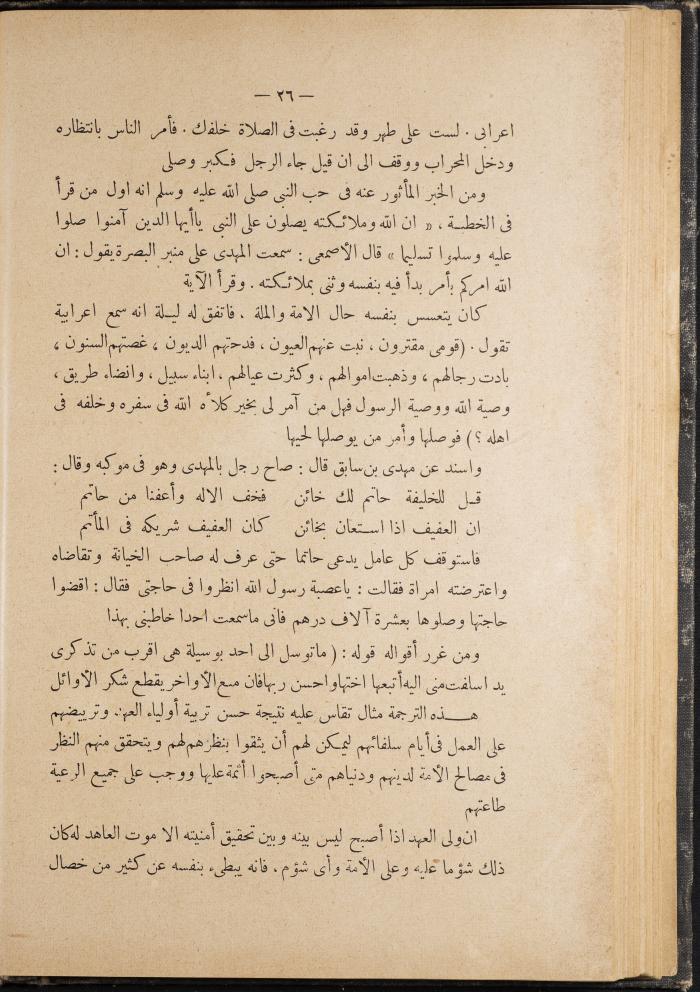 — ٢٦ —
اعرابى . لست على طهر وقد رغبت فى الصلاة خلفك . فأمر الناس بانتظاره
ودخل المحراب ووقف الى ان قيل جاء الرجل فكبر وصلى
ومن الخبر المأثور عنه فى حب النبى صلى الله عليه وسلم انه اول من قرأ
فى الخطبة ، « ان الله وملائكته يصلون على النبى ياأيها الدين آمنوا صلوا
عليه وسلموا تسليما » قال الأصمعى : سمعت المهدى على منبر البصرة يقول : ان
الله امركم بأمر بدأ فيه بنفسه وثنى بملائكته . وقرأ الآية
كان يتعسس بنفسه حال الامة والملة . فاتفق له ليلة انه سمع اعرابية
تقول . (قومى مقترون ، نبت عنهم العيون ، فدحتهم الديون ، غصتهم السنون ،
بادت رجالهم ، وذهبت اموالهم ، وكثرت عيالهم ، ابناء سبيل ، وانضاء طريق ،
وصية الله ووصية الرسول فهل من آمر لى بخير كلأه الله فى سفره وخلفه فى
اهله ؟ ) فوصلها وأمر من يوصلها لحيها
واسند عن مهدى بن سابق قال : صاح رجل بالمهدى وهو فى موكبه وقال :
قل للخليفة حاتم لك خائن فخف الاله وأعفنا من حاتم
ان العفيف اذا استعان بخائن كان العفيف شريكه فى المأتم
فاستوقف كل عامل يدعى حاتما حتى عرف له صاحب الخيانة وتقاضاه
واعترضته امراة فقالت : ياعصبة رسول الله انظروا فى حاجتى فقال : اقضوا
حاجتها وصلوها بعشرة آلاف درهم فانى ماسمعت احدا خاطبنى بهذا
ومن غرر أقواله قوله : ( ماتوسل الى احد بوسيلة هى اقرب من تذكرى
يد اسلفت منى اليه أتبعها اختها واحسن ربها فان منع الأواخر يقطع شكر الأوائل
هذه الترجمة مثال تقاس عليه نتيجة حسن تربية أولياء العهد وتربيضهم
على العمل فى أيام سلفائهم ليمكن لهم أن يثقوا بنظرهم لهم ويتحقق منهم النظر
فى مصالح الأمة لدينهم ودنياهم متى أصبحوا أئمة عليها ووجب على جميع الرعية
طاعتهم
ان ولى العهد اذا أصبح ليس بينه وبين تحقيق أمنيته الا موت العاهد له كان
ذلك شؤما عليه وعلى الأمة وأى شؤم . فانه يبطىء بنفسه عن كثير من خصال